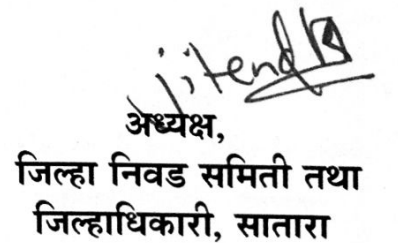 अध्यक्ष,
जिल्हा निवड समिती तथा
जिल्हाधिकारी, सातारा